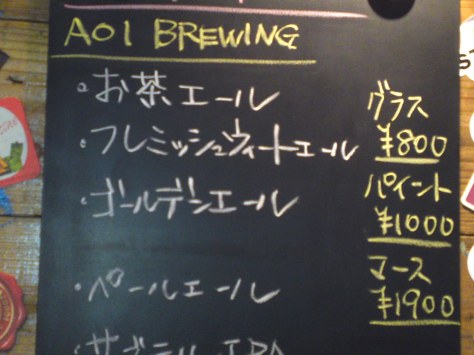 AOI BREWING
・お茶エール
・フレミッシュウィートエール
・ゴールデンエール
・ペールエール
グラス
¥800
パイント
¥1000
マース
¥1900